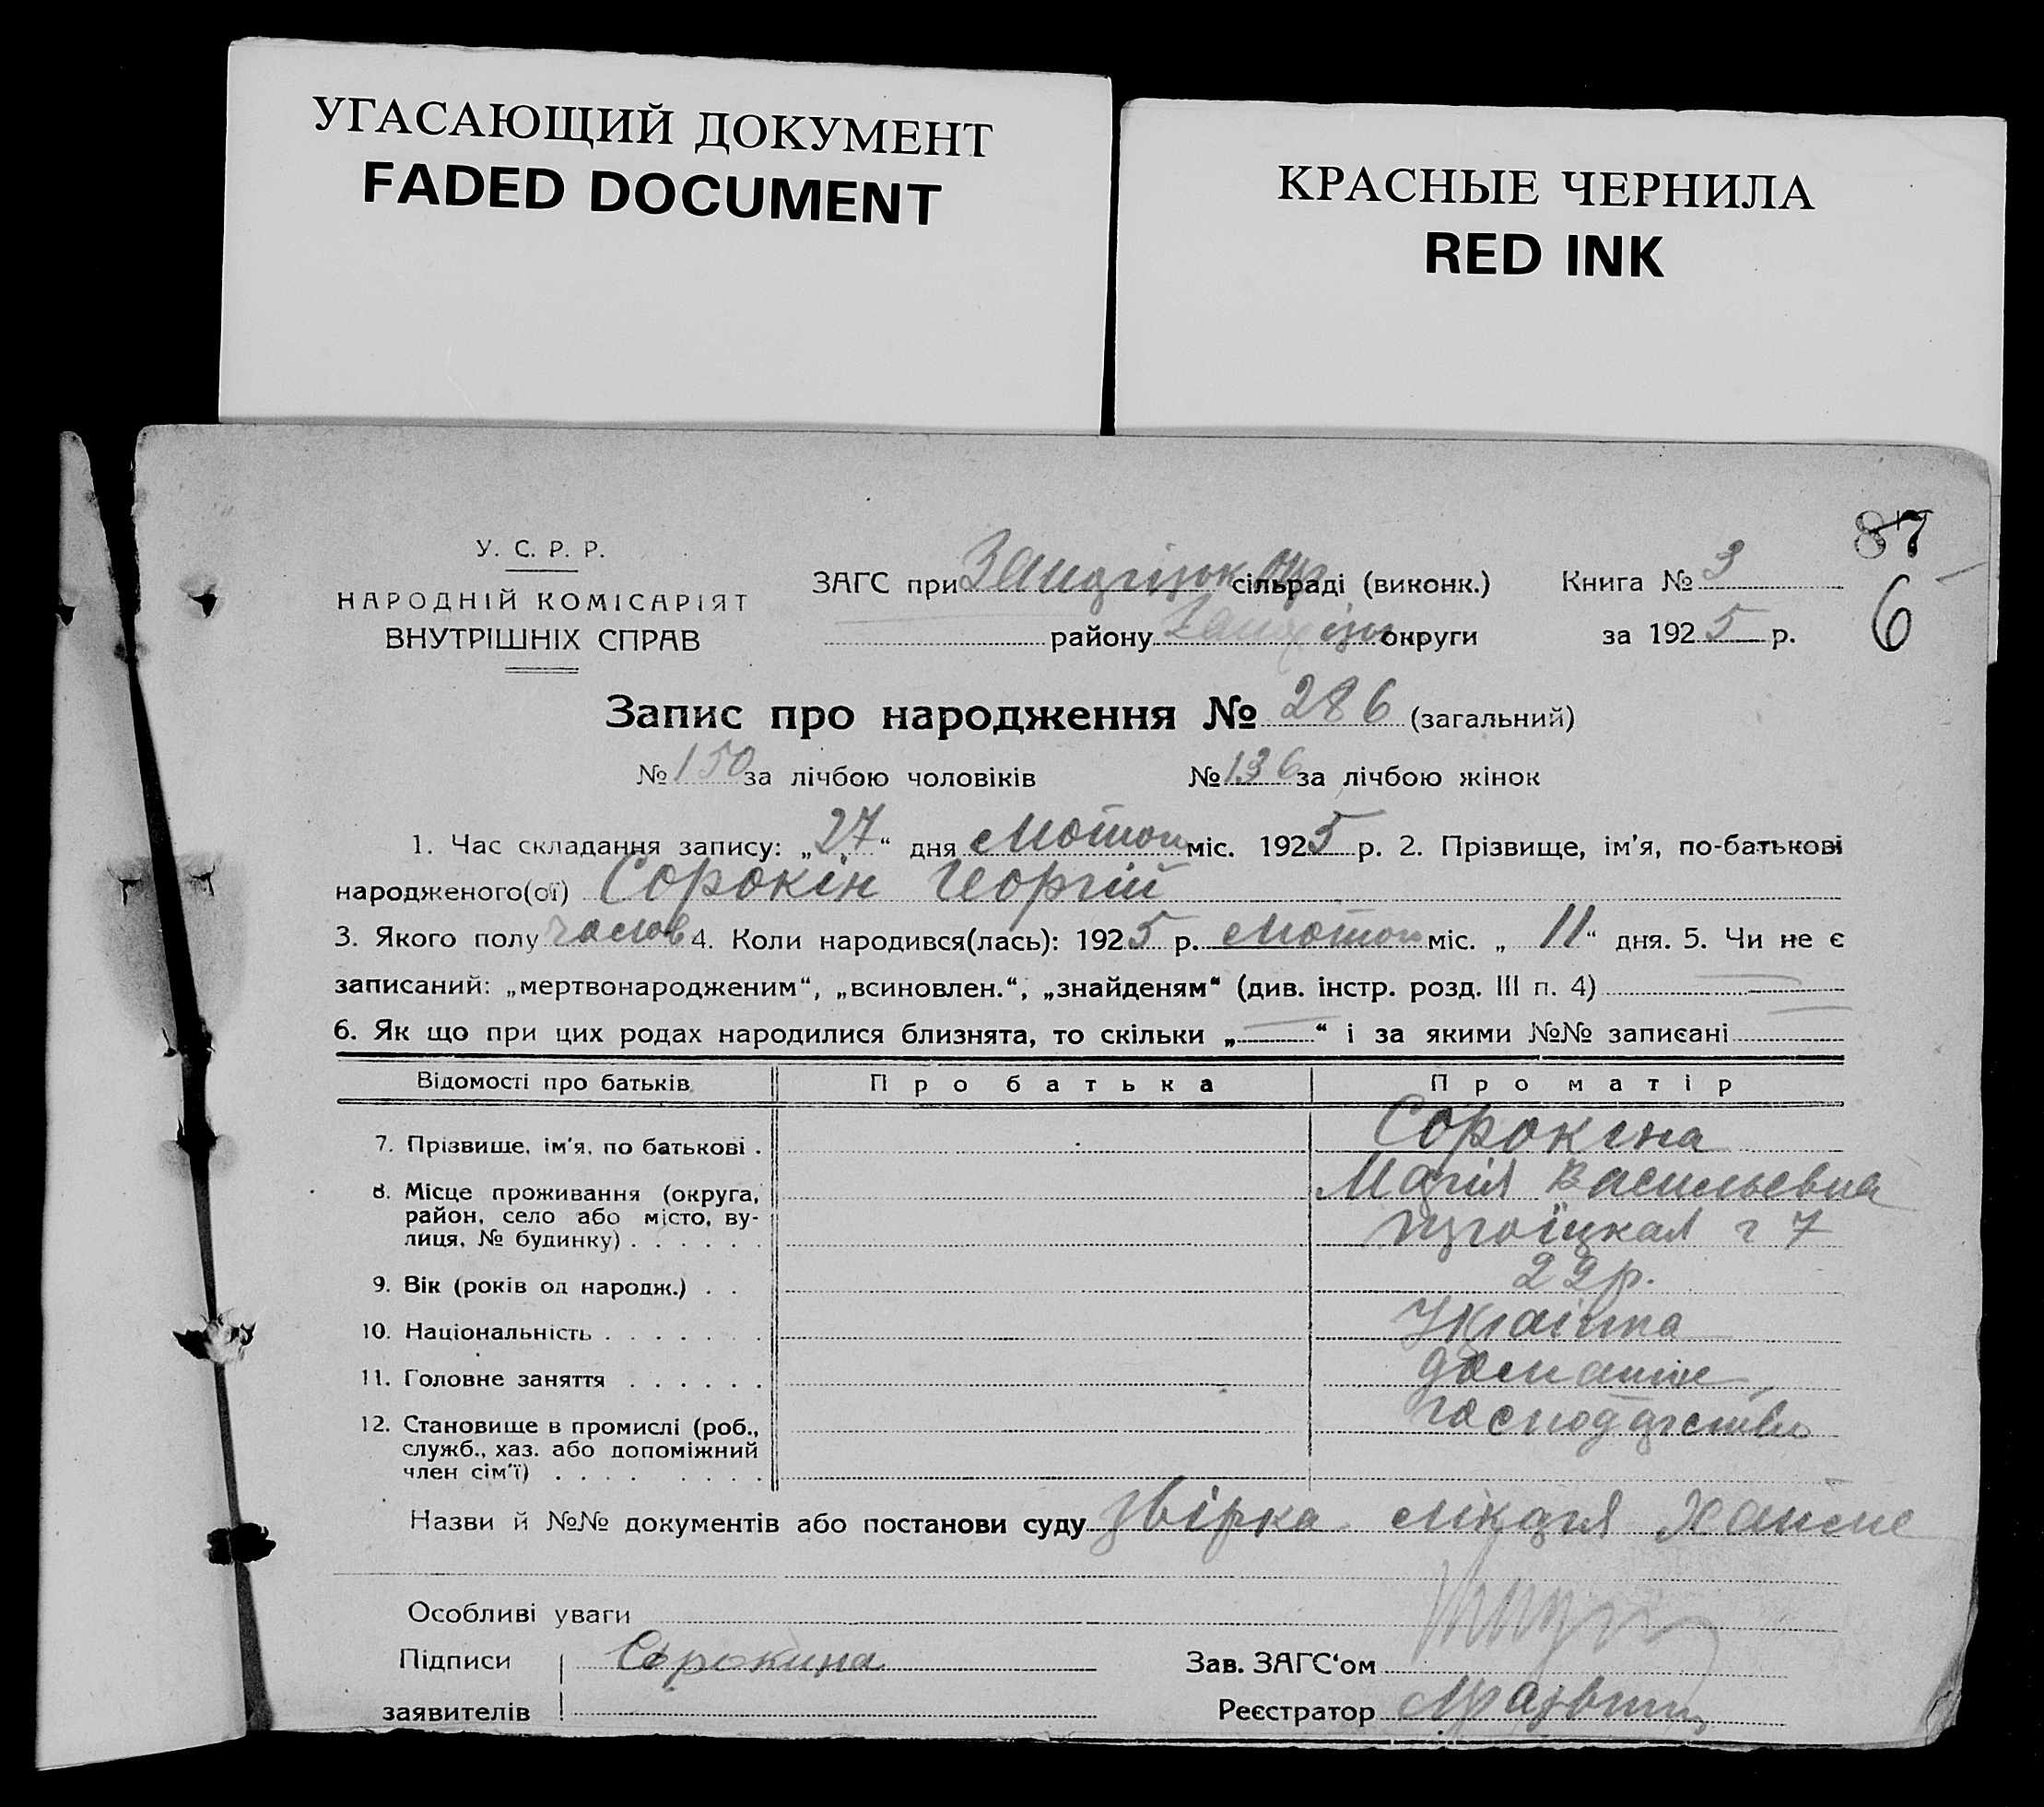 УГАСАЮЩИЙ ДОКУМЕНТ
FADED DOCUMENT
КРАСНЫЕ ЧЕРНИЛА
RED INK
87
6
У. С. Р. Р.
НАРОДНІЙ КОМІСАРІЯТ
ВНУТРІШНІХ СПРАВ
ЗАГС при сільраді (виконк.) Книга № 3
району округи за 1925 р.
Запис про народження № 286 (загальний)
№ 150 за лічбою чоловіків № 136 за лічбою жінок
1. Час складання запису: „27“ дня Лютого міс. 1925 р. 2. Прізвище, ім’я, по-батькові
народженого(ої) Сорокін Георгій
3. Якого полу чолов 4. Коли народився(лась): 1925 р. Лютого міс. „11“ дня. 5. Чи не є
записаний: „мертвонародженим“, „всиновлен.“, „знайденям“ (див. інстр. розд. III п. 4)
6. Як що при цих родах народилися близнята, то скільки „—“ і за якими №№ записані
Відомості про батьків Про батька Про матір
7. Прізвище, ім’я, по батькові . Сорокіна
8. Місце проживання (округа, Марія Васильевна
район, село або місто, ву-
лиця, № будинку) . . . . . . Троїцкая 7
9. Вік (років од народж.) . . 22 р.
10. Національність . . . . . . . Україінка
11. Головне заняття . . . . . . домашнє
12. Становище в промислі (роб., господарство
служб., хаз. або допоміжний
член сім’ї) . . . . . . . .
Назви й №№ документів або постанови суду звірка лікаря
Особливі уваги
Підписи Сорокина Зав. ЗАГС‘ом
заявителів Реєстратор